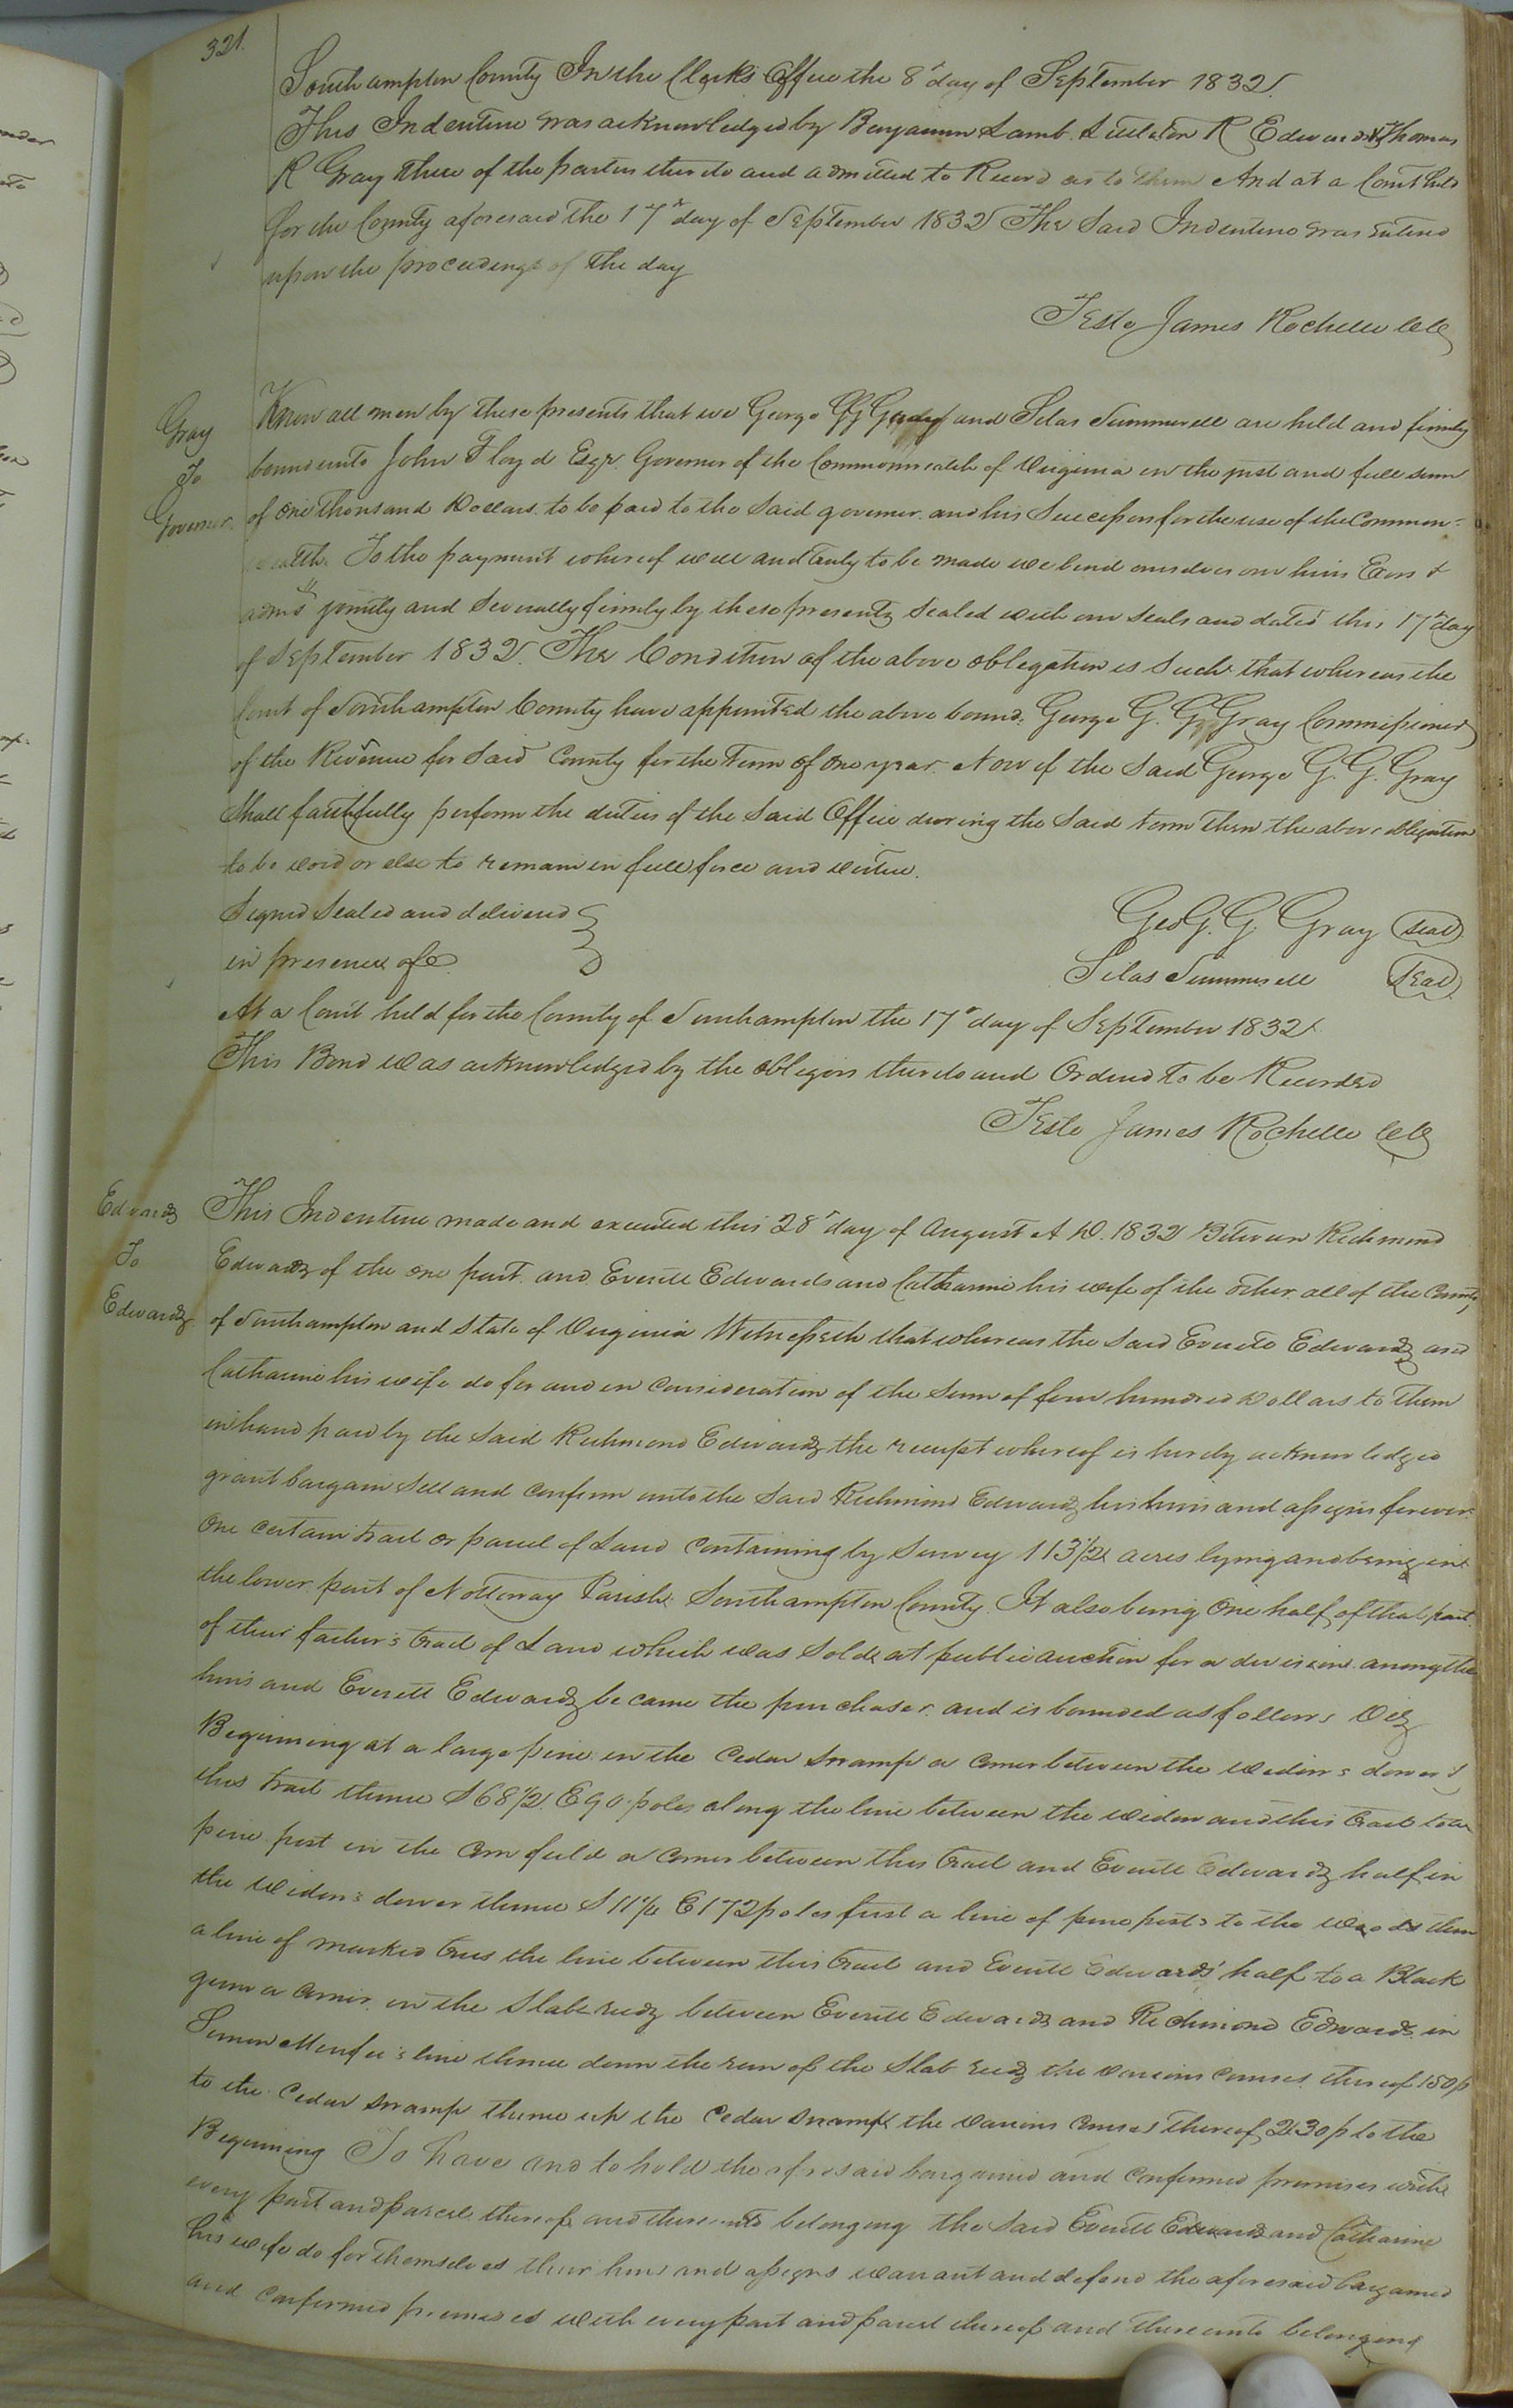 321.
Southampton County In the Clerks Office the 8th day of September 1832.
This Indenture was acknowledged by Benjamin Lamb. Littleton R Edwards & Thomas
R Gray three of the parties thereto and admitted to Record as to them And at a Court held
for the County aforesaid the 17th day of September 1832 The Said Indenture was entered
upon the proceedings of the day
Teste James Rochelle CC
Gray
To
Governor.
Know all men by these presents that we George G G Gray and Silas Summerell are held and firmly
bound unto John Floyd Esqr. Governor of the Commonwealth of Virginia in the just and full sum
of one thousand Dollars. to be paid to the Said governor. and his Successors for the use of the Common=
wealth. To the payment whereof well and truly to be made we bind ourselves our heirs Exors &
adms jointly and Severally firmly by these presents Sealed with our seals and dated this 17th day
of September 1832. The Condition of the above obligation is Such that whereas the
Court of Southampton County have appointed the above bound. George G. G. Gray Commissioner
of the Revenue for Said County for the term of one year. Now if the Said George G. G. Gray
Shall faithfully perform the duties of the Said Office during the Said term then the above obligation
to be void or else to remain in full force and virtue.
Signed Sealed and delivered
in presence of
Geo G. G. Gray Seal
Silas Summerell Seal
At a Court held for the County of Southampton the 17th day of September 1832
This Bond was acknowledged by the obligors thereto and Ordered to be Recorded
Teste James Rochelle CC
Edwards
To
Edwards
This Indenture made and executed this 28th day of August A D. 1832 Between Richmond
Edwards of the one part. and Everett Edwards and Catharine his wife of the other. all of the County
of Southampton and State of Virginia Witnesseth that whereas the Said Everett Edwards and
Catharine his wife do for and in Consideration of the Sum of four hundred Dollars to them
in hand paid by the Said Richmond Edwards the receipt whereof is hereby acknowledged
grant bargain Sell and Confirm unto the Said Richmond Edwards his heirs and assigns forever.
One certain tract or parcel of Land Containing by Survey 113 1/2 acres lying and being in
the lower part of Nottoway Parish Southampton County. It also being One half of that part
of their father's tract of Land which was Sold at public auction for a division among the
heirs and Everett Edwards became the purchaser. and is bounded as follows Viz
Beginning at a large pine in the Cedar Swamp a corner between the widow's dower &
this tract thence S 68 1/2 E 90 poles along the line between the widow and this tract to a
pine post in the Corn field a Corner between this tract and Everett Edwards half in
the widow's dower thence S 11 E 172 poles first a line of pine posts to the woods then
a line of marked trees the line between this tract and Everett Edwards' half to a Black
gum a corner in the Slab reedy between Everett Edwards and Richmond Edwards in
line thence down the run of the Slab reedy the various courses thereof 150 p
to the Cedar Swamp thence up the Cedar Swamp the various courses thereof 230 p to the
Beginning To have and to hold the aforesaid bargained and Confirmed premises with
every part and parcel thereof and thereunto belonging the Said Everett Edwards and Catharine
his wife do for themselves their heirs and assigns warrant and defend the aforesaid bargained
and Confirmed premises with every part and parcel thereof and thereunto belonging